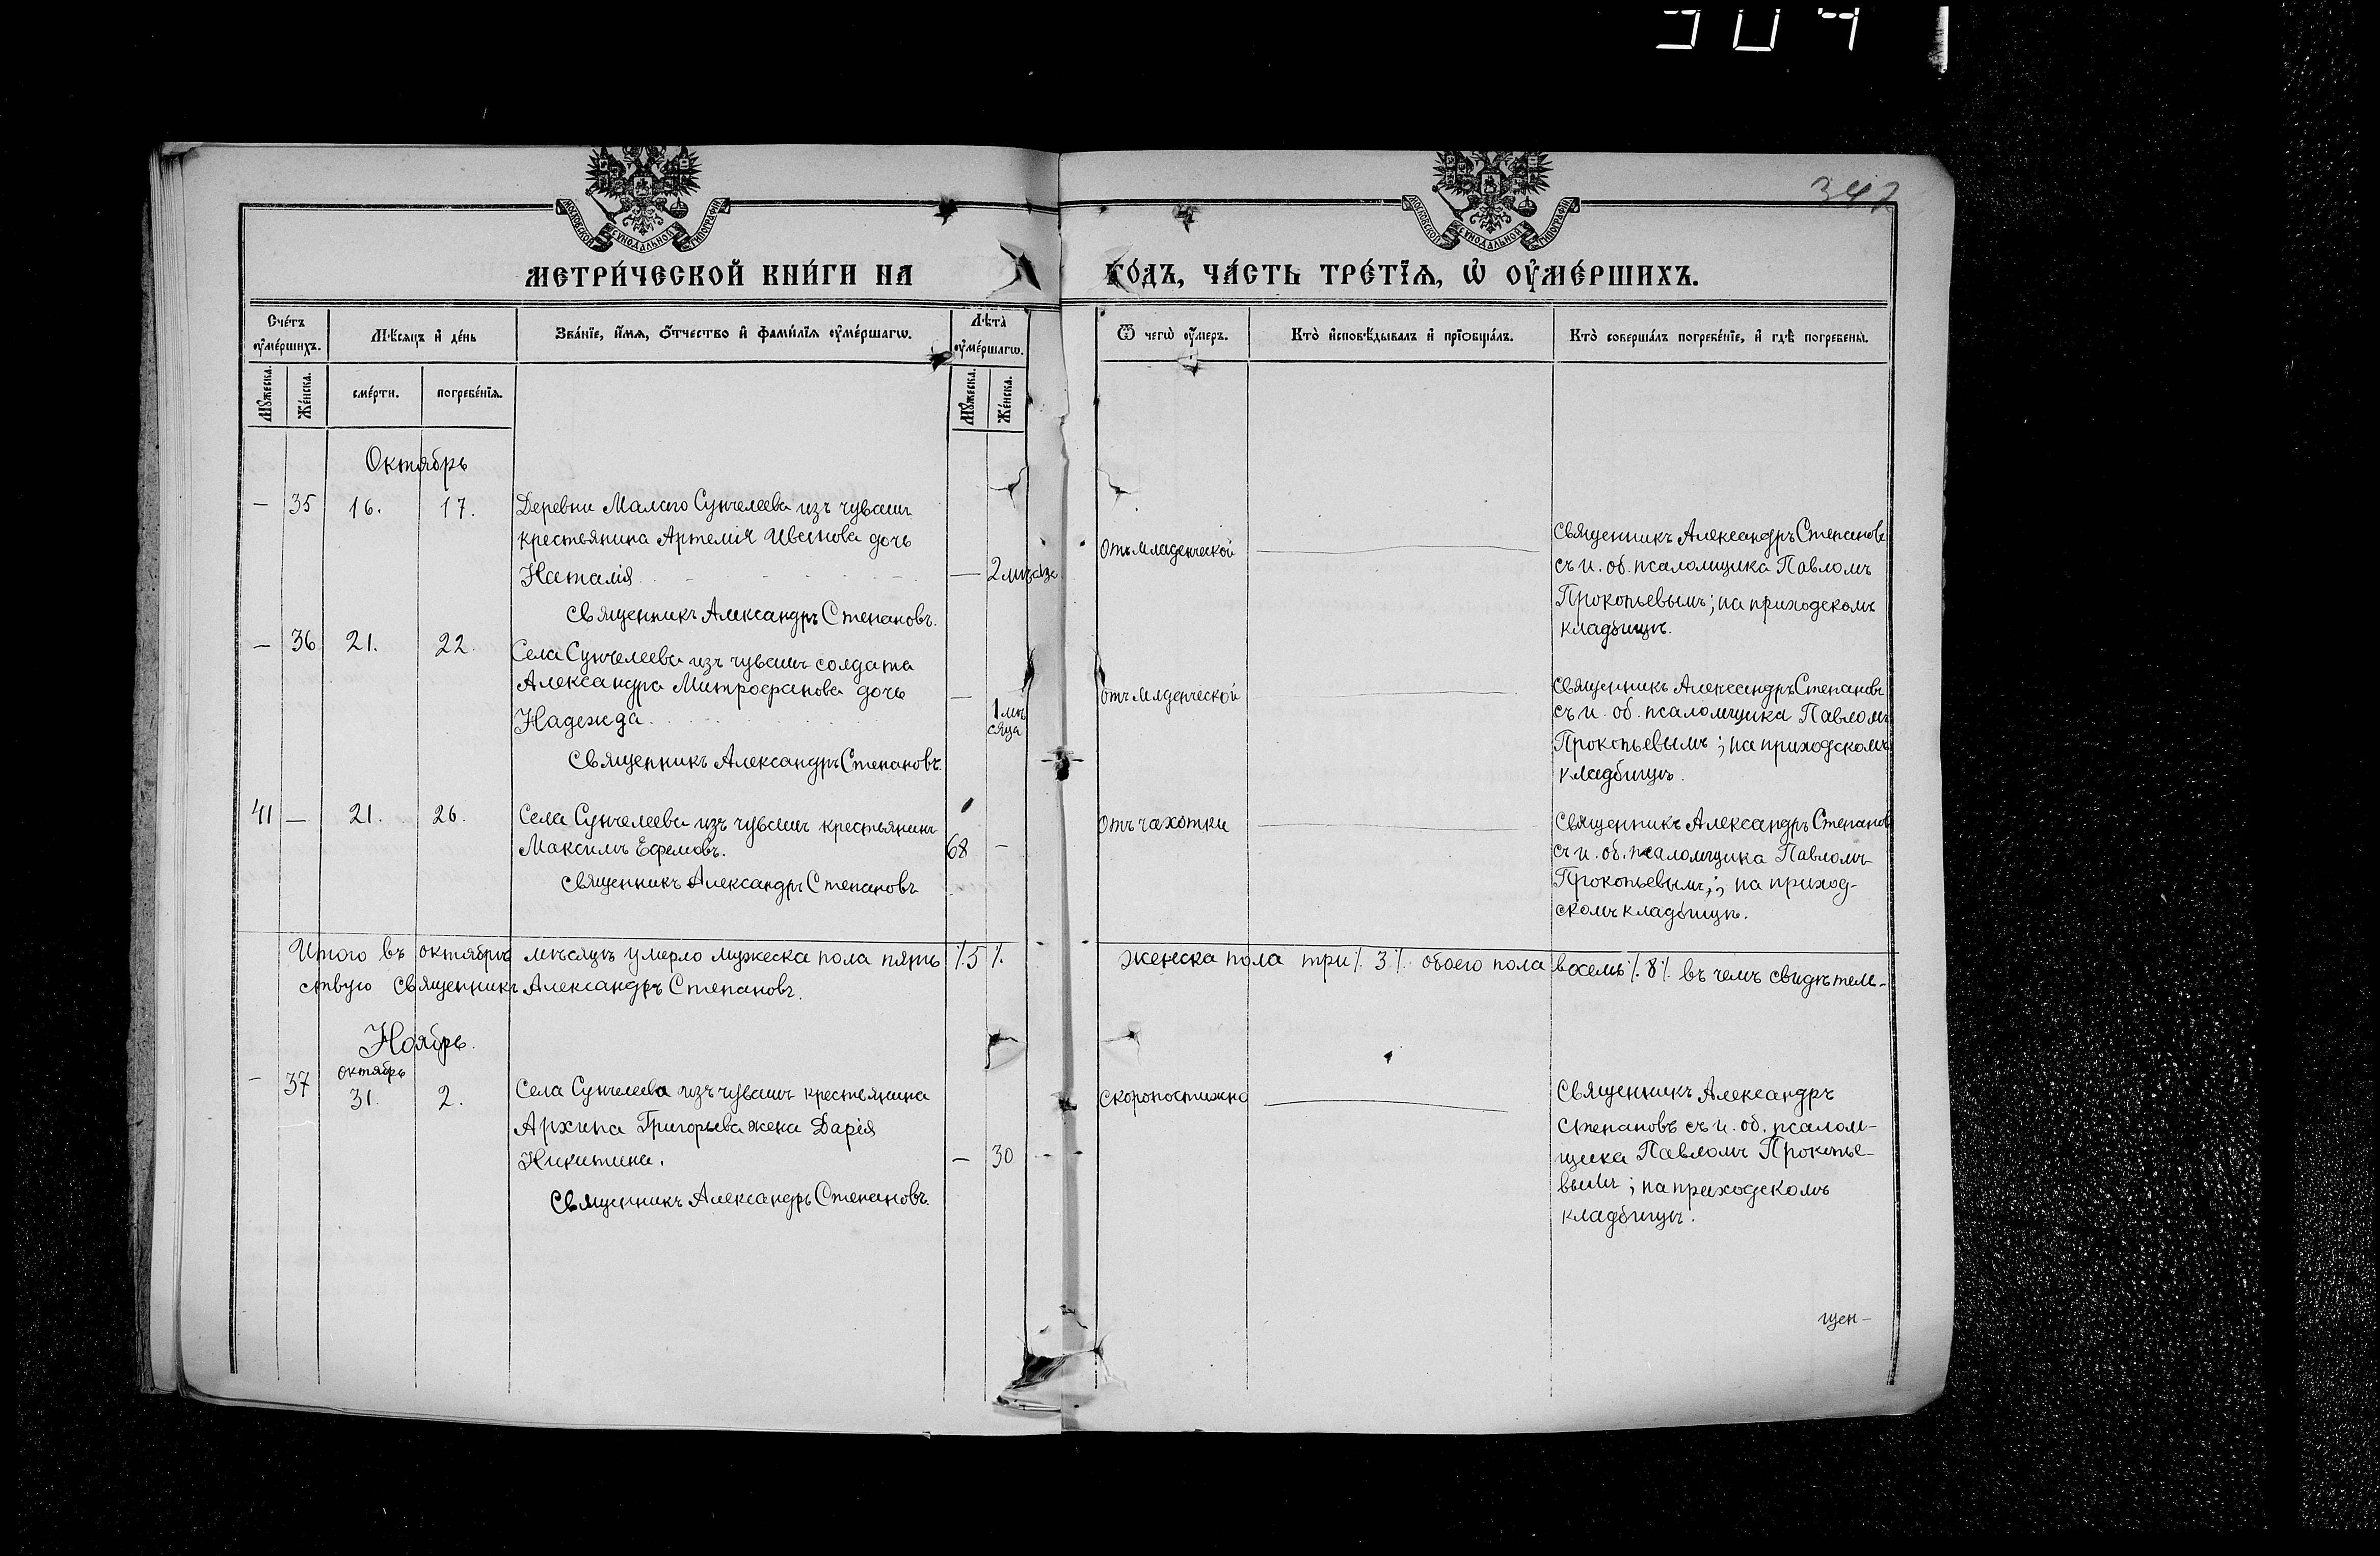 342
МОСКОВСКОЙ СУНОДАЛЬНОЙ ТИПОГРАФІИ
МОСКОВСКОЙ СУНОДАЛЬНОЙ ТИПОГРАФІИ
МЕТРИ́ЧЕСКОЙ КНИ́ГИ НА
ГО́ДЪ, ЧА́СТЬ ТРЕ́ТЇѦ, Ѡ҆ ОУ҆МЕ́РШИХЪ.
Сче́тъ оу҆ме́ршихъ.
Мꙋ́жеска.
Же́нска.
Мѣ́сѧцъ и҆ де́нь
сме́рти.
погребе́нїѧ.
Зва́нїе, и҆́мѧ, ѻ҆́тчество и҆ фами́лїѧ оу҆ме́ршагѡ.
Лѣ̀та̀ оу҆ме́ршагѡ.
Мꙋ́жеска.
Же́нска.
Ѿ чегѡ̀ оу҆́меръ.
Кто̀ и҆сповѣ́дывалъ и҆ прїѻбща́лъ.
Кто̀ соверша́лъ погребе́нїе, и҆ гдѣ̀ погребены̀.
Октябрь
— 35 16. 17. Деревни Малаго Сунчелеева изъ чувашъ
крестьянина Артемія Иванова дочь
Наталія — 2 мѣсяца
Священникъ Александръ Степановъ.
отъ младенческой
Священникъ Александръ Степановъ
съ и. об. псаломщика Павломъ
Прокопьевымъ; на приходскомъ
кладбищѣ.
— 36 21. 22. Села Сунчелеева изъ чувашъ солдата
Александра Митрофанова дочь
Надежда — 1 мѣ
сяца
Священникъ Александръ Степановъ.
отъ млденческой
Священникъ Александръ Степановъ
съ и. об. псаломщика Павломъ
Прокопьевымъ; на приходскомъ
кладбищѣ.
41 — 21. 26. Села Сунчелеева изъ чувашъ крестьянинъ
Максимъ Ефемовъ. 68 —
Священникъ Александръ Степановъ
Отъ чахотки
Священникъ Александръ Степановъ
съ и. об. псаломщика Павломъ
Прокопьевымъ; на приход-
скомъ кладбищѣ.
Итого въ октябрѣ мѣсяцѣ умерло мужеска пола пять ٪5٪ женска пола три ٪3٪ обоего пола восемь ٪8٪ въ чемъ свидѣтель-
ствую Священникъ Александръ Степановъ.
Ноябрь.
октябрь
— 37 31. 2. Села Сунчелеева изъ чувашъ крестьянина
Архипа Григорьева жена Дарія
Никитина. — 30
Священникъ Александръ Степановъ.
скоропостижно
Священникъ Александръ
Степановъ съ и. об. псалом-
щика Павломъ Прокопье-
вымъ; на приходскомъ
кладбищѣ.
щен-